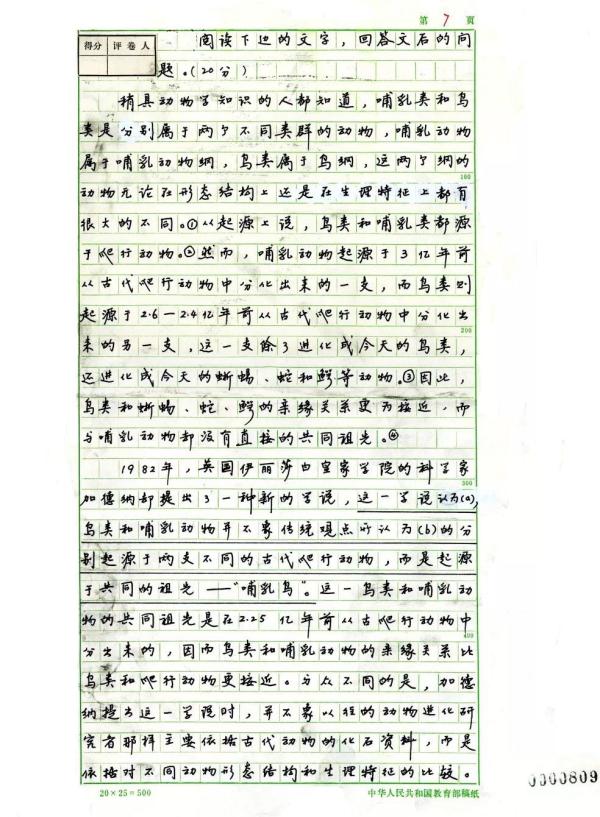 第 7 页
得分 评卷人
阅读下边的文字，回答文后的问
题。(20分)
稍具动物学知识的人都知道，哺乳类和鸟
类是分别属于两个不同类群的动物，哺乳动物
属于哺乳动物纲，鸟类属于鸟纲，这两个纲的
100
动物无论在形态结构上还是在生理特征上都有
很大的不同。①从起源上说，鸟类和哺乳类都源
于爬行动物。②然而，哺乳动物起源于3亿年前
从古代爬行动物中分化出来的一支，而鸟类则
起源于2.6—2.4亿年前从古代爬行动物中分化出
200
来的另一支，这一支除了进化成今天的鸟类，
还进化成今天的蜥蜴、蛇和鳄等动物。③因此，
鸟类和蜥蜴、蛇、鳄的亲缘关系更为接近，而
与哺乳动物却没有直接的共同祖先。④
1982年，英国伊丽莎白皇家学院的科学家
300
加德纳却提出了一种新的学说，这一学说认为(a)，
鸟类和哺乳动物并不象传统观点所认为(b)的分
别起源于两支不同的古代爬行动物，而是起源
于共同的祖先——“哺乳鸟”。这一鸟类和哺乳动
物的共同祖先是在2.25亿年前从古爬行动物中
400
分出来的，因而鸟类和哺乳动物的亲缘关系比
鸟类和爬行动物更接近。与众不同的是，加德
纳提出这一学说时，并不象以往的动物进化研
究者那样主要依据古代动物的化石资料，而是
依据对不同动物形态结构和生理特征的比较。
20×25=500
中华人民共和国教育部稿纸
0000809